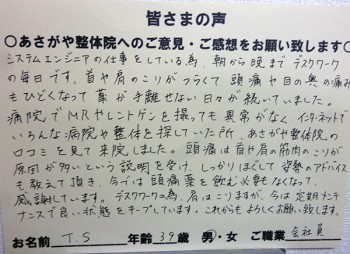 皆さまの声
○あさがや整体院へのご意見・ご感想をお願い致します○
システムエンジニアの仕事をしている為、朝から晩までデスクワーク
の毎日です。首や肩のこりがつらくて頭痛や目の奥の痛み
もひどくなって薬が手離せない日々が続いていました。
病院でMRやレントゲンを撮っても異常がなくインターネットで
いろんな病院や整体を探していた所、あさがや整体院の
口コミを見て来院しました。頭痛は首や肩の筋肉のこりが
原因が多いという説明を受け、しっかりほぐして姿勢のアドバイス
も教えて頂き、今では頭痛薬を飲む必要もなくなって
感謝しています。デスクワークの為、肩はこりますが、今は定期メンテ
ナンスで良い状態をキープしています。これからもよろしくお願い致します。
お名前 T.S 年齢 39 歳 男・女 ご職業 会社員